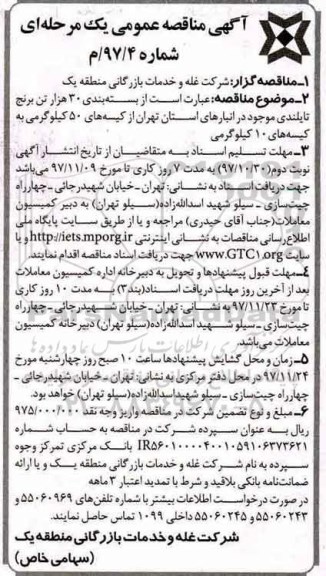 آگهی مناقصه عمومی یک مرحله‌ای
شماره ۹۷/۴/م
۱-مناقصه‌گزار: شرکت غله و خدمات بازرگانی منطقه یک
۲-موضوع مناقصه: عبارت است از بسته‌بندی ۳۰ هزار تن برنج
تایلندی موجود در انبارهای استان تهران از کیسه‌های ۵۰ کیلوگرمی به
کیسه‌های ۱۰ کیلوگرمی
۳-مهلت تسلیم اسناد به متقاضیان از تاریخ انتشار آگهی
نوبت دوم(۹۷/۱۰/۳۰) به مدت ۷ روز کاری تا مورخ ۹۷/۱۱/۰۹ می‌باشد
جهت دریافت اسناد به نشانی: تهران-خیابان شهیدرجائی-چهارراه
چیت‌سازی-سیلو شهید اسدالله‌زاده(سیلو تهران) به دبیر کمیسیون
معاملات(جناب آقای حیدری) مراجعه و یا از طریق سایت پایگاه ملی
اطلاع‌رسانی مناقصات به نشانی اینترنتی http://iets.mporg.ir و یا
سایت www.GTC1.org جهت دریافت اسناد مناقصه اقدام نمایند.
۴-مهلت قبول پیشنهادها و تحویل به دبیرخانه اداره کمیسیون معاملات
بعد از آخرین روز مهلت دریافت اسناد(بند۳) به مدت ۱۰ روز کاری
تا مورخ ۹۷/۱۱/۲۳ به نشانی: تهران-خیابان شهیدرجائی-چهارراه
چیت‌سازی-سیلو شهید اسدالله‌زاده(سیلو تهران) دبیرخانه کمیسیون
معاملات می‌باشد.
۵-زمان و محل گشایش پیشنهادها ساعت ۱۰ صبح روز چهارشنبه مورخ
۹۷/۱۱/۲۴ در محل دفتر مرکزی به نشانی: تهران-خیابان شهید رجائی-
چهارراه چیت‌سازی-سیلو شهید اسدالله‌زاده(سیلو تهران) خواهد بود.
۶-مبلغ و نوع تضمین شرکت در مناقصه واریز وجه نقد ۹۷۵/۰۰۰/۰۰۰
ریال به عنوان سپرده شرکت در مناقصه به حساب شماره
IR۵۶۰۱۰۰۰۰۴۰۰۱۰۵۹۱۰۶۳۷۳۶۲۱ بانک مرکزی تمرکز وجوه
سپرده به نام شرکت غله و خدمات بازرگانی منطقه یک و یا ارائه
ضمانت‌نامه بانکی بلاقید و شرط با تمدید اعتبار ۳ ماهه
در صورت درخواست اطلاعات بیشتر با شماره تلفن‌های ۵۵۰۶۰۹۶۹ و
۵۵۰۶۰۲۴۳ و ۵۵۰۶۰۲۴۵ داخلی ۱۰۹۹ تماس حاصل نمایند.
شرکت غله و خدمات بازرگانی منطقه یک
(سهامی خاص)